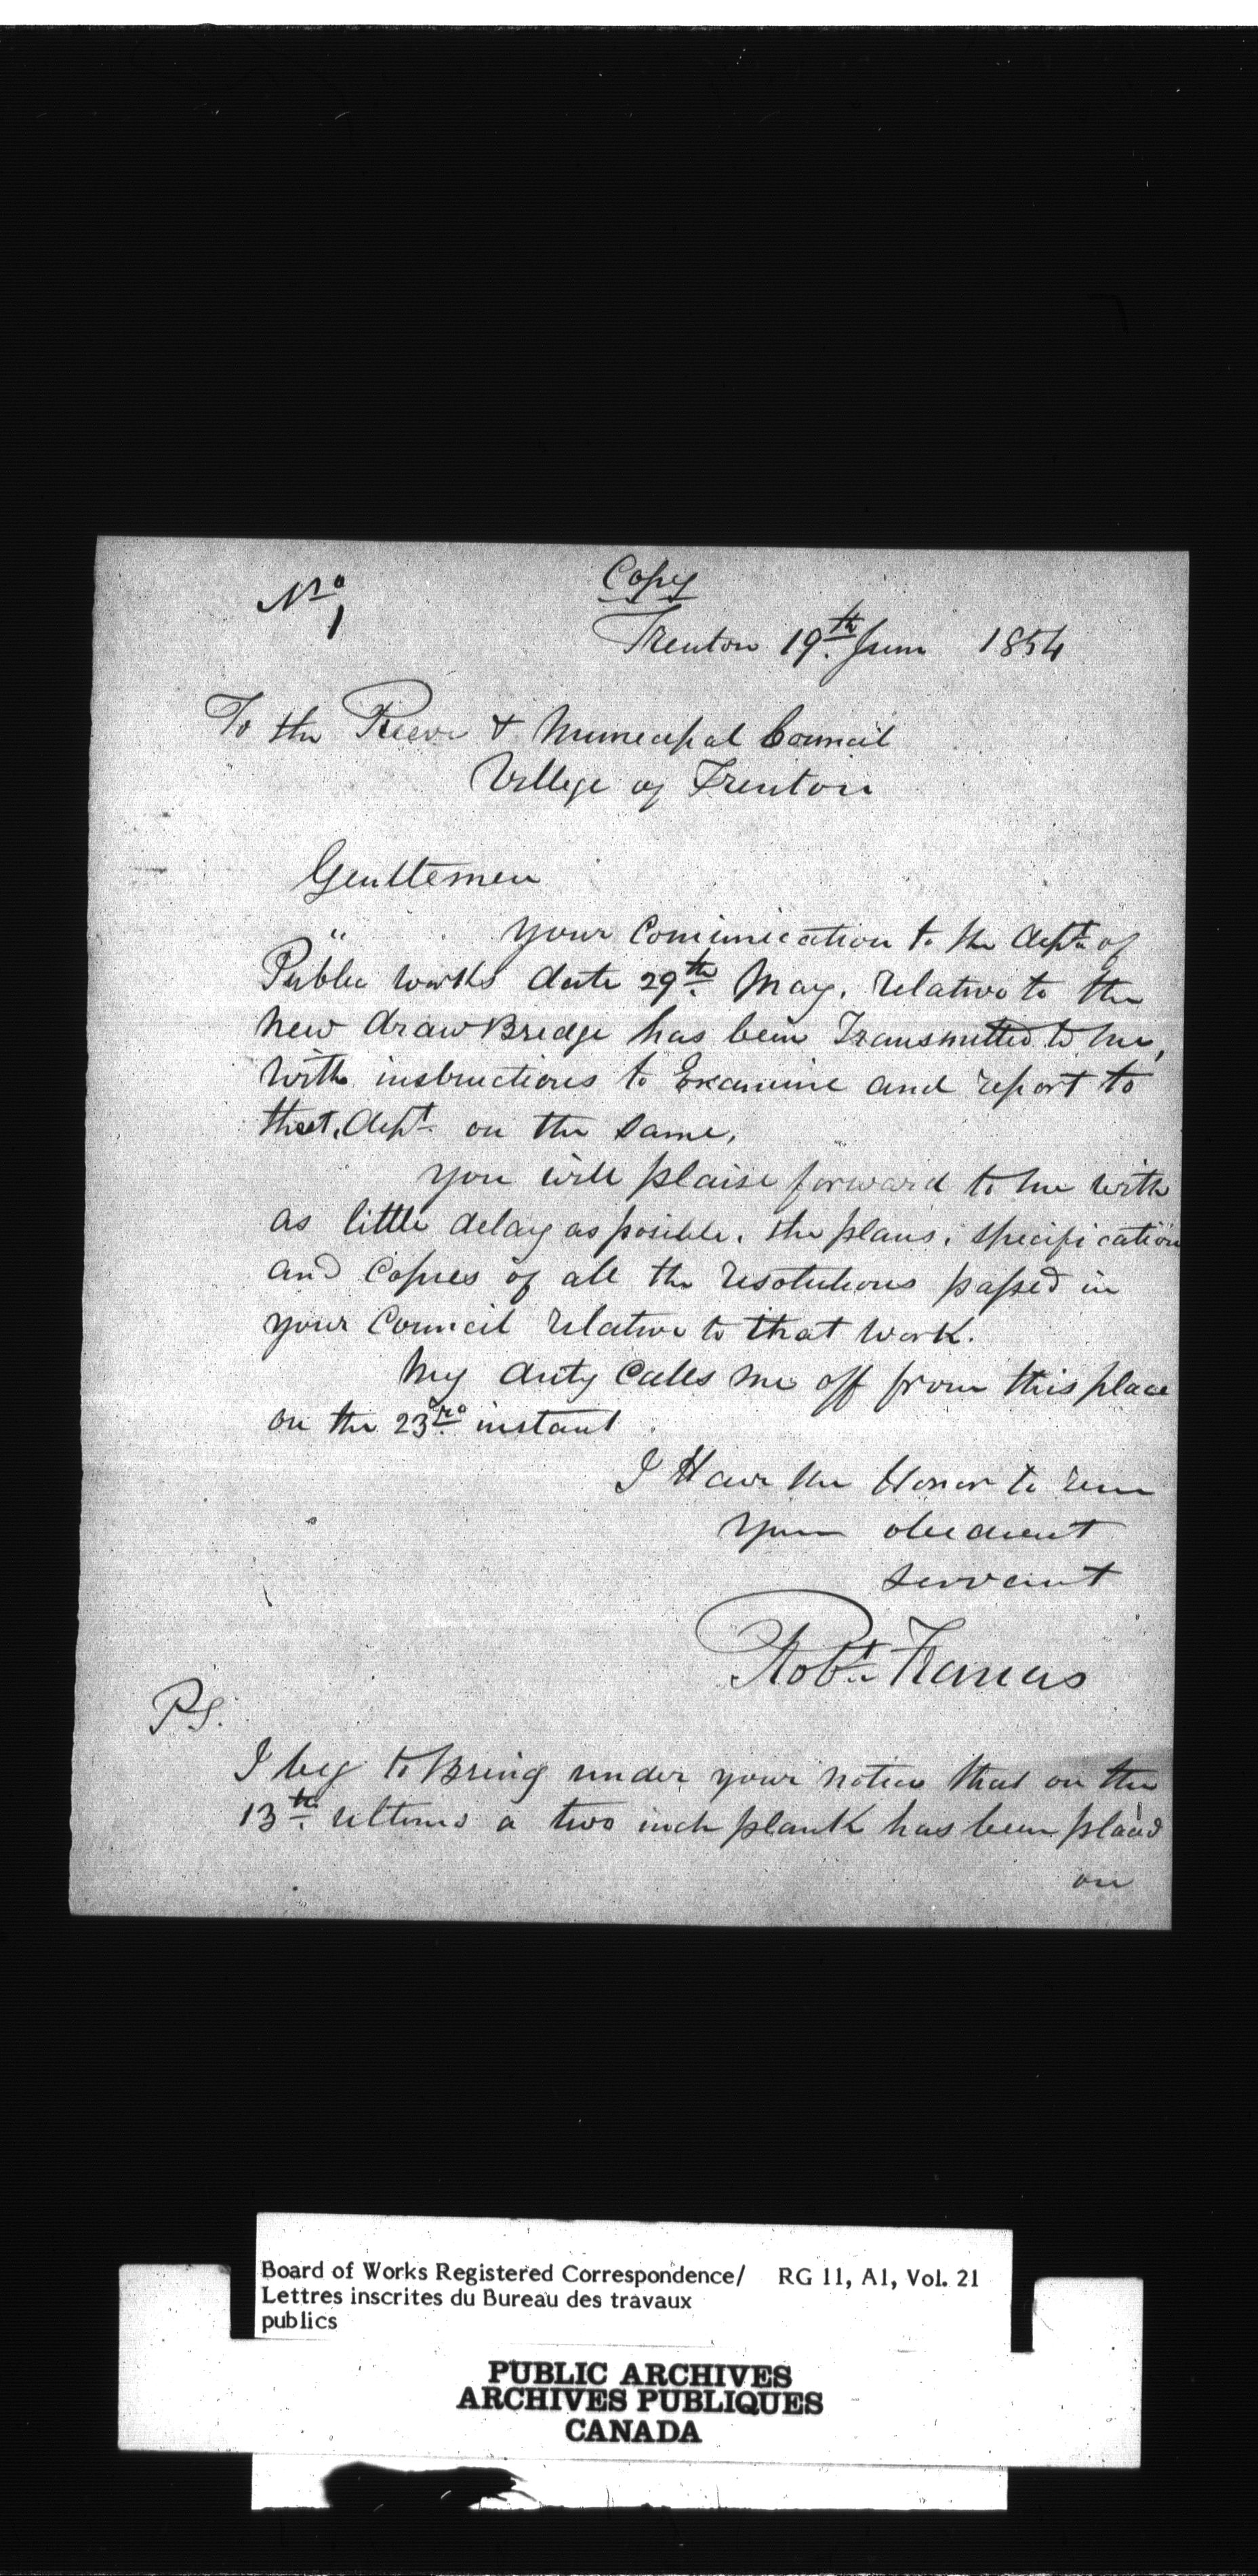 Copy
No 1
Trenton 19th June 1854
To the Reeve & Municipal Council
Village of Trenton
Gentlemen
your Comunication to the dept of
Public works date 29th May. relative to the
new draw Bredge has been Transmitted to me,
with instructions to Examine and report to
that dept on the same,
you will plaise forward to me with
as little delay as posible. the plans. specification
and Copies of all the resolutions passed in
your Council relative to that work.
My duty calls me off from this place
on the 23rd instant
I Have the Honor to
your obedient
servant
Robt Francus
PS.
I beg to Bring under your notice that on the
13th ultimo a two inch plank has been placed
on
Board of Works Registered Correspondence/ RG 11, A1, Vol. 21
Lettres inscrites du Bureau des travaux
publics
PUBLIC ARCHIVES
ARCHIVES PUBLIQUES
CANADA